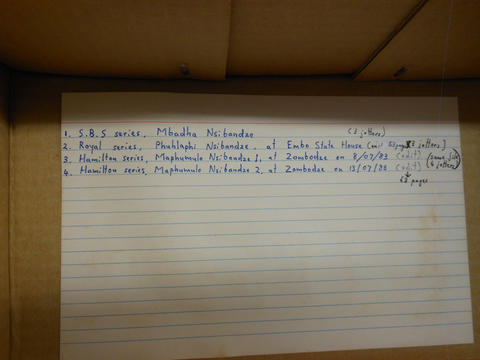 1. S.B.S series, Mbadha Nsibandze [2 jotters]
2. Royal series, Phuhlaphi Nsibandze, at Embo State House 53 pages jotters]
3. Hamilton series, Maphumulo Nsibandze 1, at Zombodze on 8/07/83 (edit) (same file
4. Hamilton series, Maphumulo Nsibandze 2, at Zombodze on 13/07/83 (edit) jotters)
63 pages